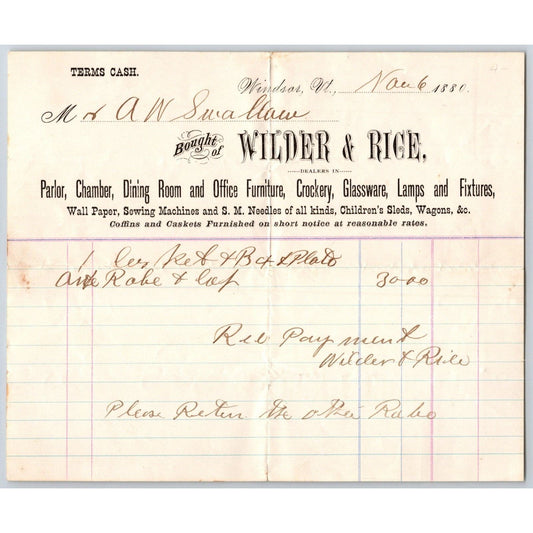 TERMS CASH.
Windsor, Vt., Nov 6 1880.
Mr A W Swallow
Bought of WILDER & RICE,
DEALERS IN
Parlor, Chamber, Dining Room and Office Furniture, Crockery, Glassware, Lamps and Fixtures,
Wall Paper, Sewing Machines and S. M. Needles of all kinds, Children's Sleds, Wagons, &c.
Coffins and Caskets Furnished on short notice at reasonable rates.
1 Casket & Box & Plate
Robe & Cap 30 00
Rec Payment
Wilder & Rice
Please Return the other Robe